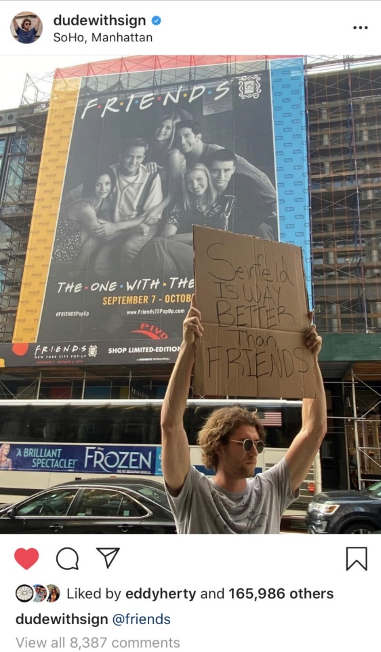 dudewithsign
SoHo, Manhattan
F·R·I·E·N·D·S
THE·ONE·WITH·THE
SEPTEMBER 7 - OCTOB
#FRIENDS25PopUp
www.Friends25PopUp.com
PIVO
F·R·I·E·N·D·S
NEW YORK CITY POP-UP
SHOP LIMITED-EDITION
Seinfeld
IS WAY
BETTER
Than
FRIENDS
"A BRILLIANT
SPECTACLE!"
FROZEN
Liked by eddyherty and 165,986 others
dudewithsign @friends
View all 8,387 comments